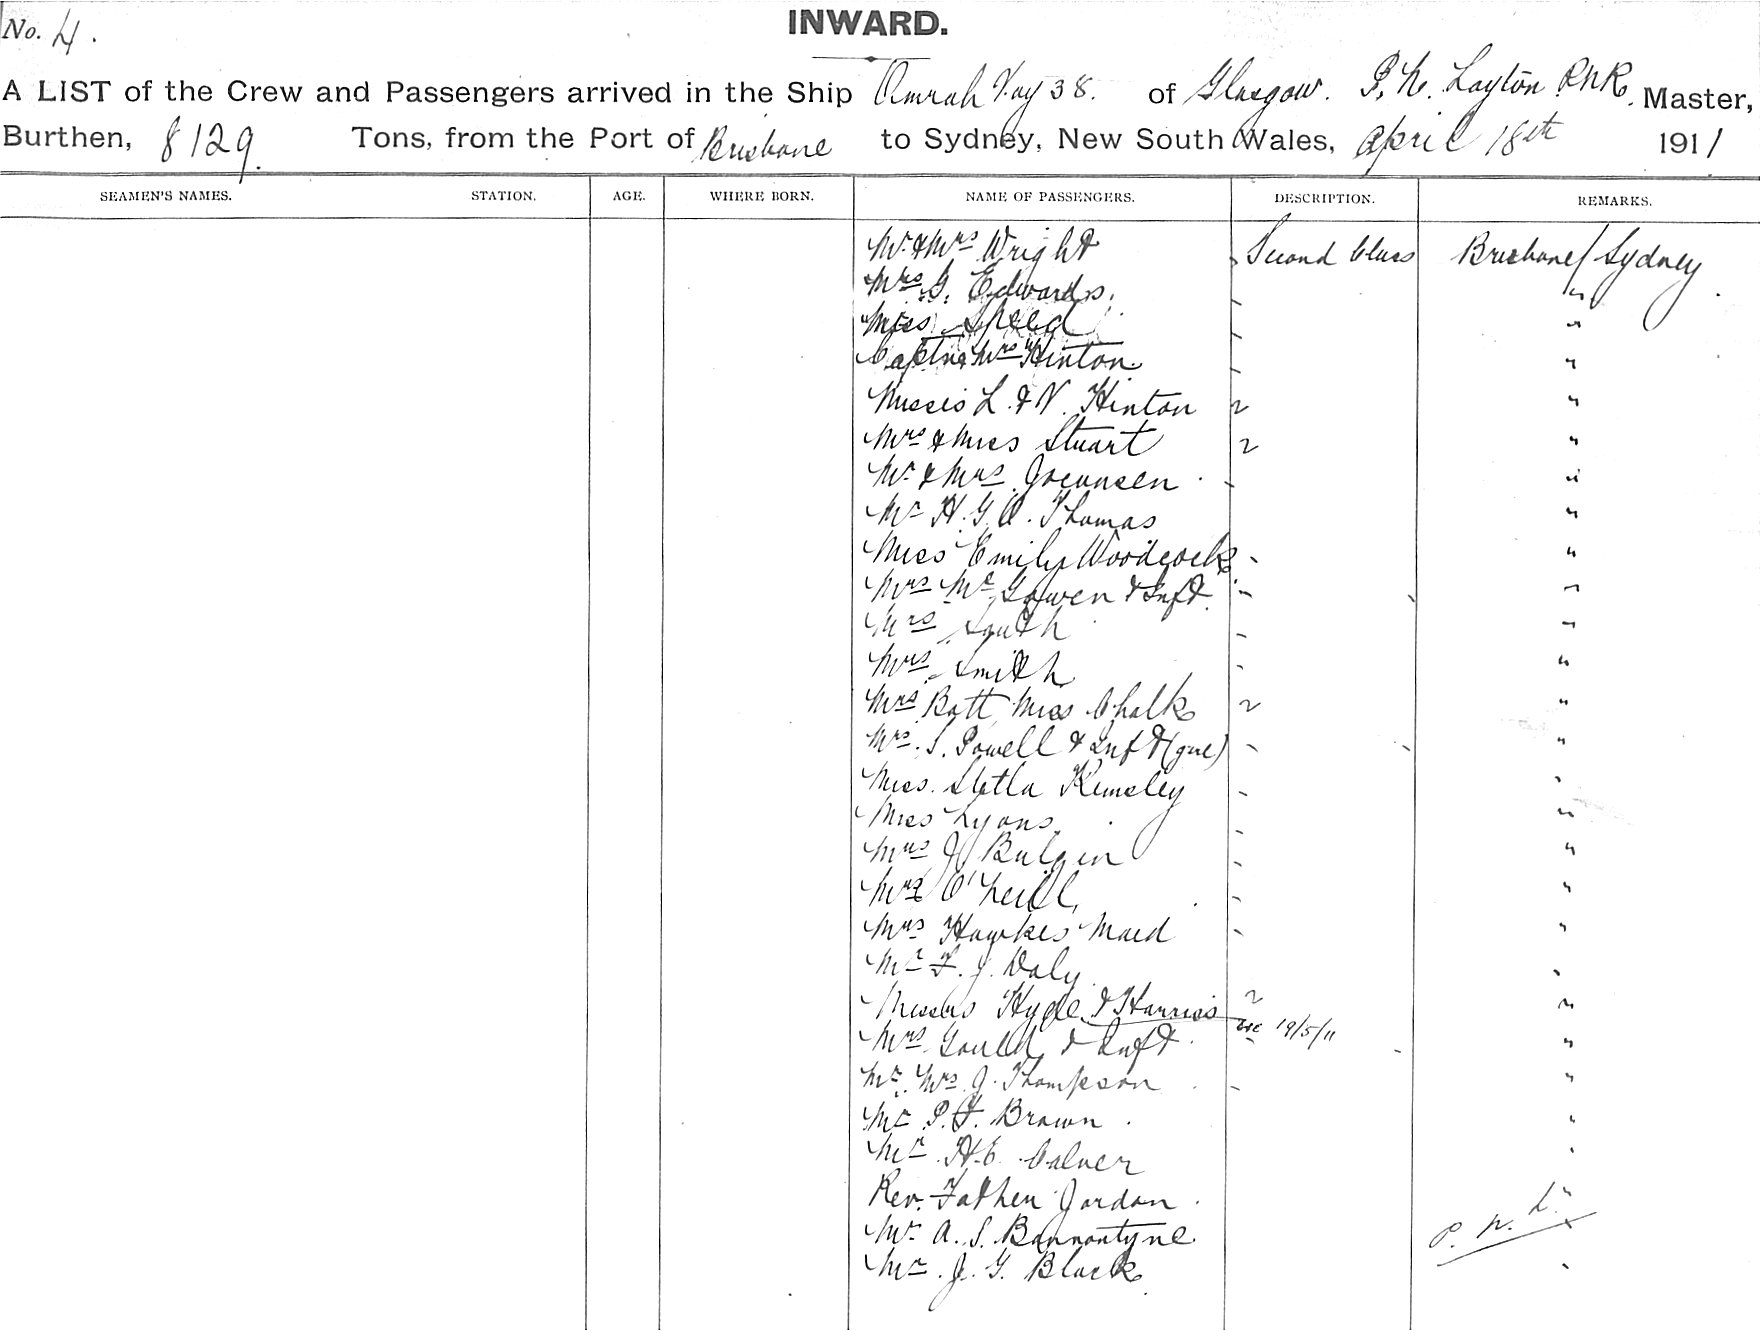 No. 4.
INWARD.
A LIST of the Crew and Passengers arrived in the Ship Omrah Voy 38. of Glasgow. P. N. Layton RNR. Master,
Burthen, 8129 Tons, from the Port of Brisbane to Sydney, New South Wales, April 18th 1911
SEAMEN'S NAMES. STATION. AGE. WHERE BORN. NAME OF PASSENGERS. DESCRIPTION. REMARKS.
Mr & Mrs Wright Second Class Brisbane/Sydney
Mrs G. Edwards. "
Miss Speed "
Captn & Mrs Hinton "
Misses L. & V. Hinton 2 "
Mrs & Miss Stuart 2 "
Mr & Mrs "
Mr H. G. A. Thomas "
Miss Emily Woodcock - "
Mrs McGowen & Inft. - "
Mrs South - "
Mrs Smith - "
Mrs Batt Miss Chalk 2 "
Mrs. S. Powell & Inft (gue) - "
Miss. Stella Kemsley - "
Miss Lyons - "
Mrs J. Bulgin - "
Mrs O'Neill, - "
Mrs Hawkes Maid - "
Mr F. J. Daly "
Messrs Hyde & Harris 2 "
Mrs Gould & Inft 19/5/11 "
Mr. Mrs J. Thompson - "
Mr P. F. Brown "
Mr. H. E. Calver "
Rev. Father Jordan "
Mr A. S. Bannantyne P. N. L.
Mr. J. G. Black "